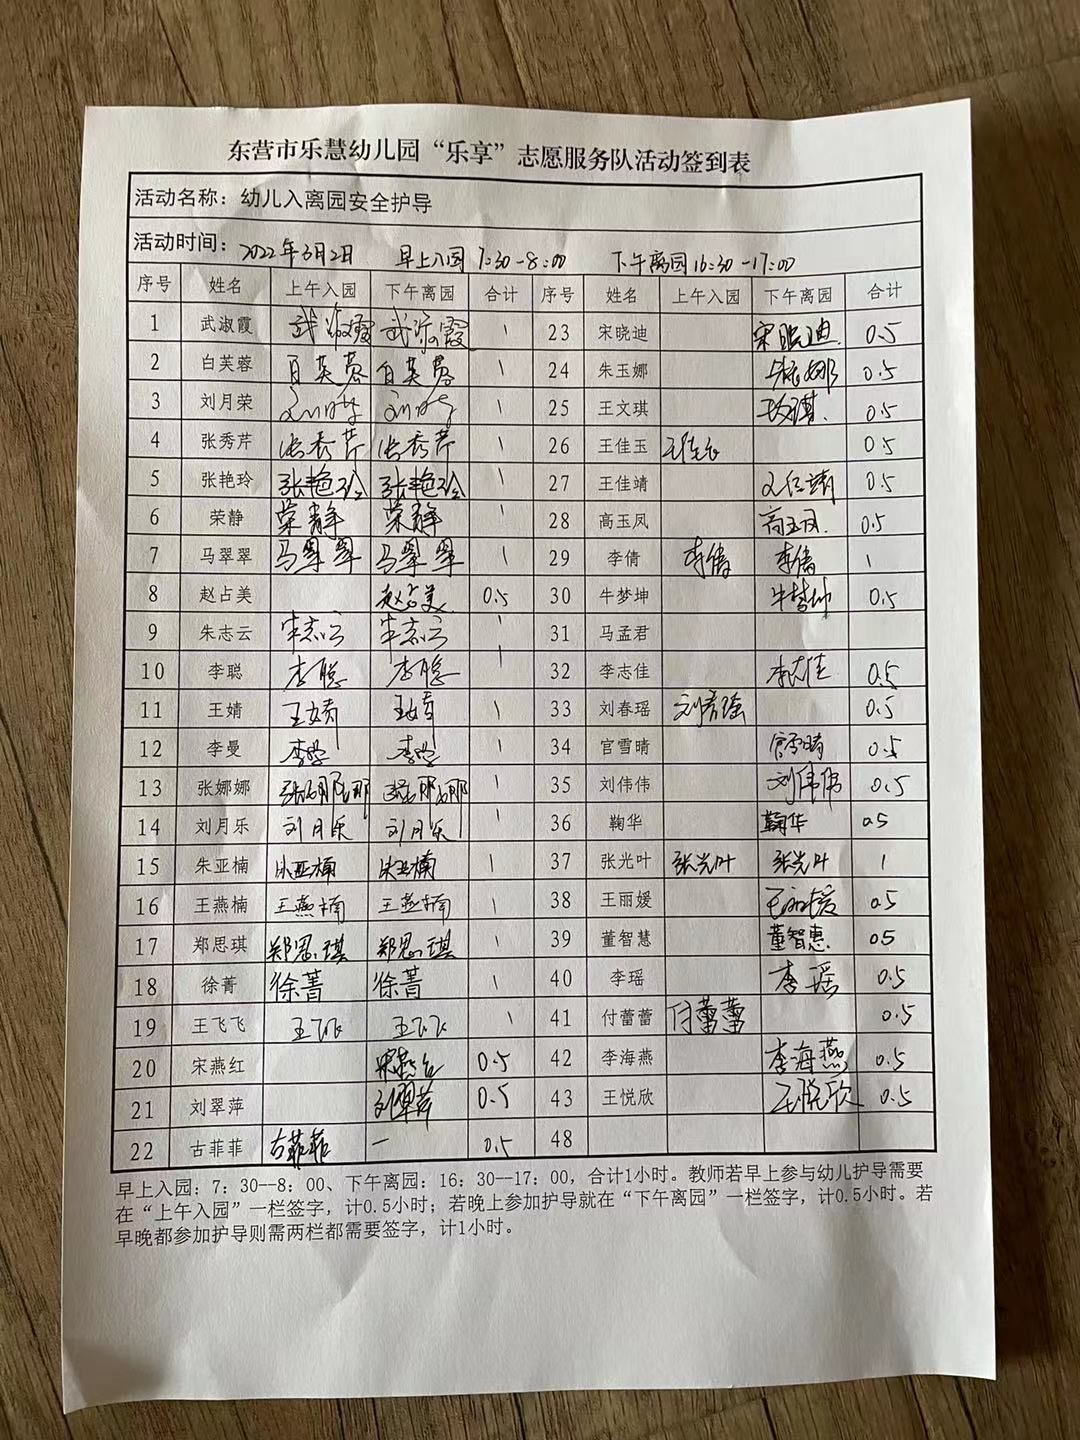 东营市乐慧幼儿园“乐享”志愿服务队活动签到表
活动名称：幼儿入离园安全护导
活动时间：2022年3月2日 早上入园 7:30-8:00 下午离园16:30-17:00
序号 姓名 上午入园 下午离园 合计 序号 姓名 上午入园 下午离园 合计
1 武淑霞 武淑霞 武淑霞 1 23 宋晓迪 宋晓迪 0.5
2 白芙蓉 白芙蓉 白芙蓉 1 24 朱玉娜 朱玉娜 0.5
3 刘月荣 刘月荣 刘月荣 1 25 王文琪 王文琪 0.5
4 张秀芹 张秀芹 张秀芹 1 26 王佳玉 王佳玉 0.5
5 张艳玲 张艳玲 张艳玲 1 27 王佳靖 王佳靖 0.5
6 荣静 荣静 荣静 1 28 高玉凤 高玉凤 0.5
7 马翠翠 马翠翠 马翠翠 1 29 李倩 李倩 李倩 1
8 赵占美 赵占美 0.5 30 牛梦坤 牛梦坤 0.5
9 朱志云 朱志云 朱志云 1 31 马孟君
10 李聪 李聪 李聪 1 32 李志佳 李志佳 0.5
11 王婧 王婧 王婧 1 33 刘春瑶 刘春瑶 0.5
12 李曼 李曼 李曼 1 34 官雪晴 官雪晴 0.5
13 张娜娜 张娜娜 张娜娜 1 35 刘伟伟 刘伟伟 0.5
14 刘月乐 刘月乐 刘月乐 1 36 鞠华 鞠华 0.5
15 朱亚楠 朱亚楠 朱亚楠 1 37 张光叶 张光叶 张光叶 1
16 王燕楠 王燕楠 王燕楠 1 38 王丽媛 王丽媛 0.5
17 郑思琪 郑思琪 郑思琪 1 39 董智慧 董智惠 0.5
18 徐菁 徐菁 徐菁 1 40 李瑶 李瑶 0.5
19 王飞飞 王飞飞 王飞飞 1 41 付蕾蕾 付蕾蕾 0.5
20 宋燕红 宋燕红 0.5 42 李海燕 李海燕 0.5
21 刘翠萍 刘翠萍 0.5 43 王悦欣 王悦欣 0.5
22 古菲菲 古菲菲 一 0.5 48
早上入园：7：30--8：00、下午离园：16：30--17：00，合计1小时。教师若早上参与幼儿护导需要
在“上午入园”一栏签字，计0.5小时；若晚上参加护导就在“下午离园”一栏签字，计0.5小时。若
早晚都参加护导则需两栏都需要签字，计1小时。